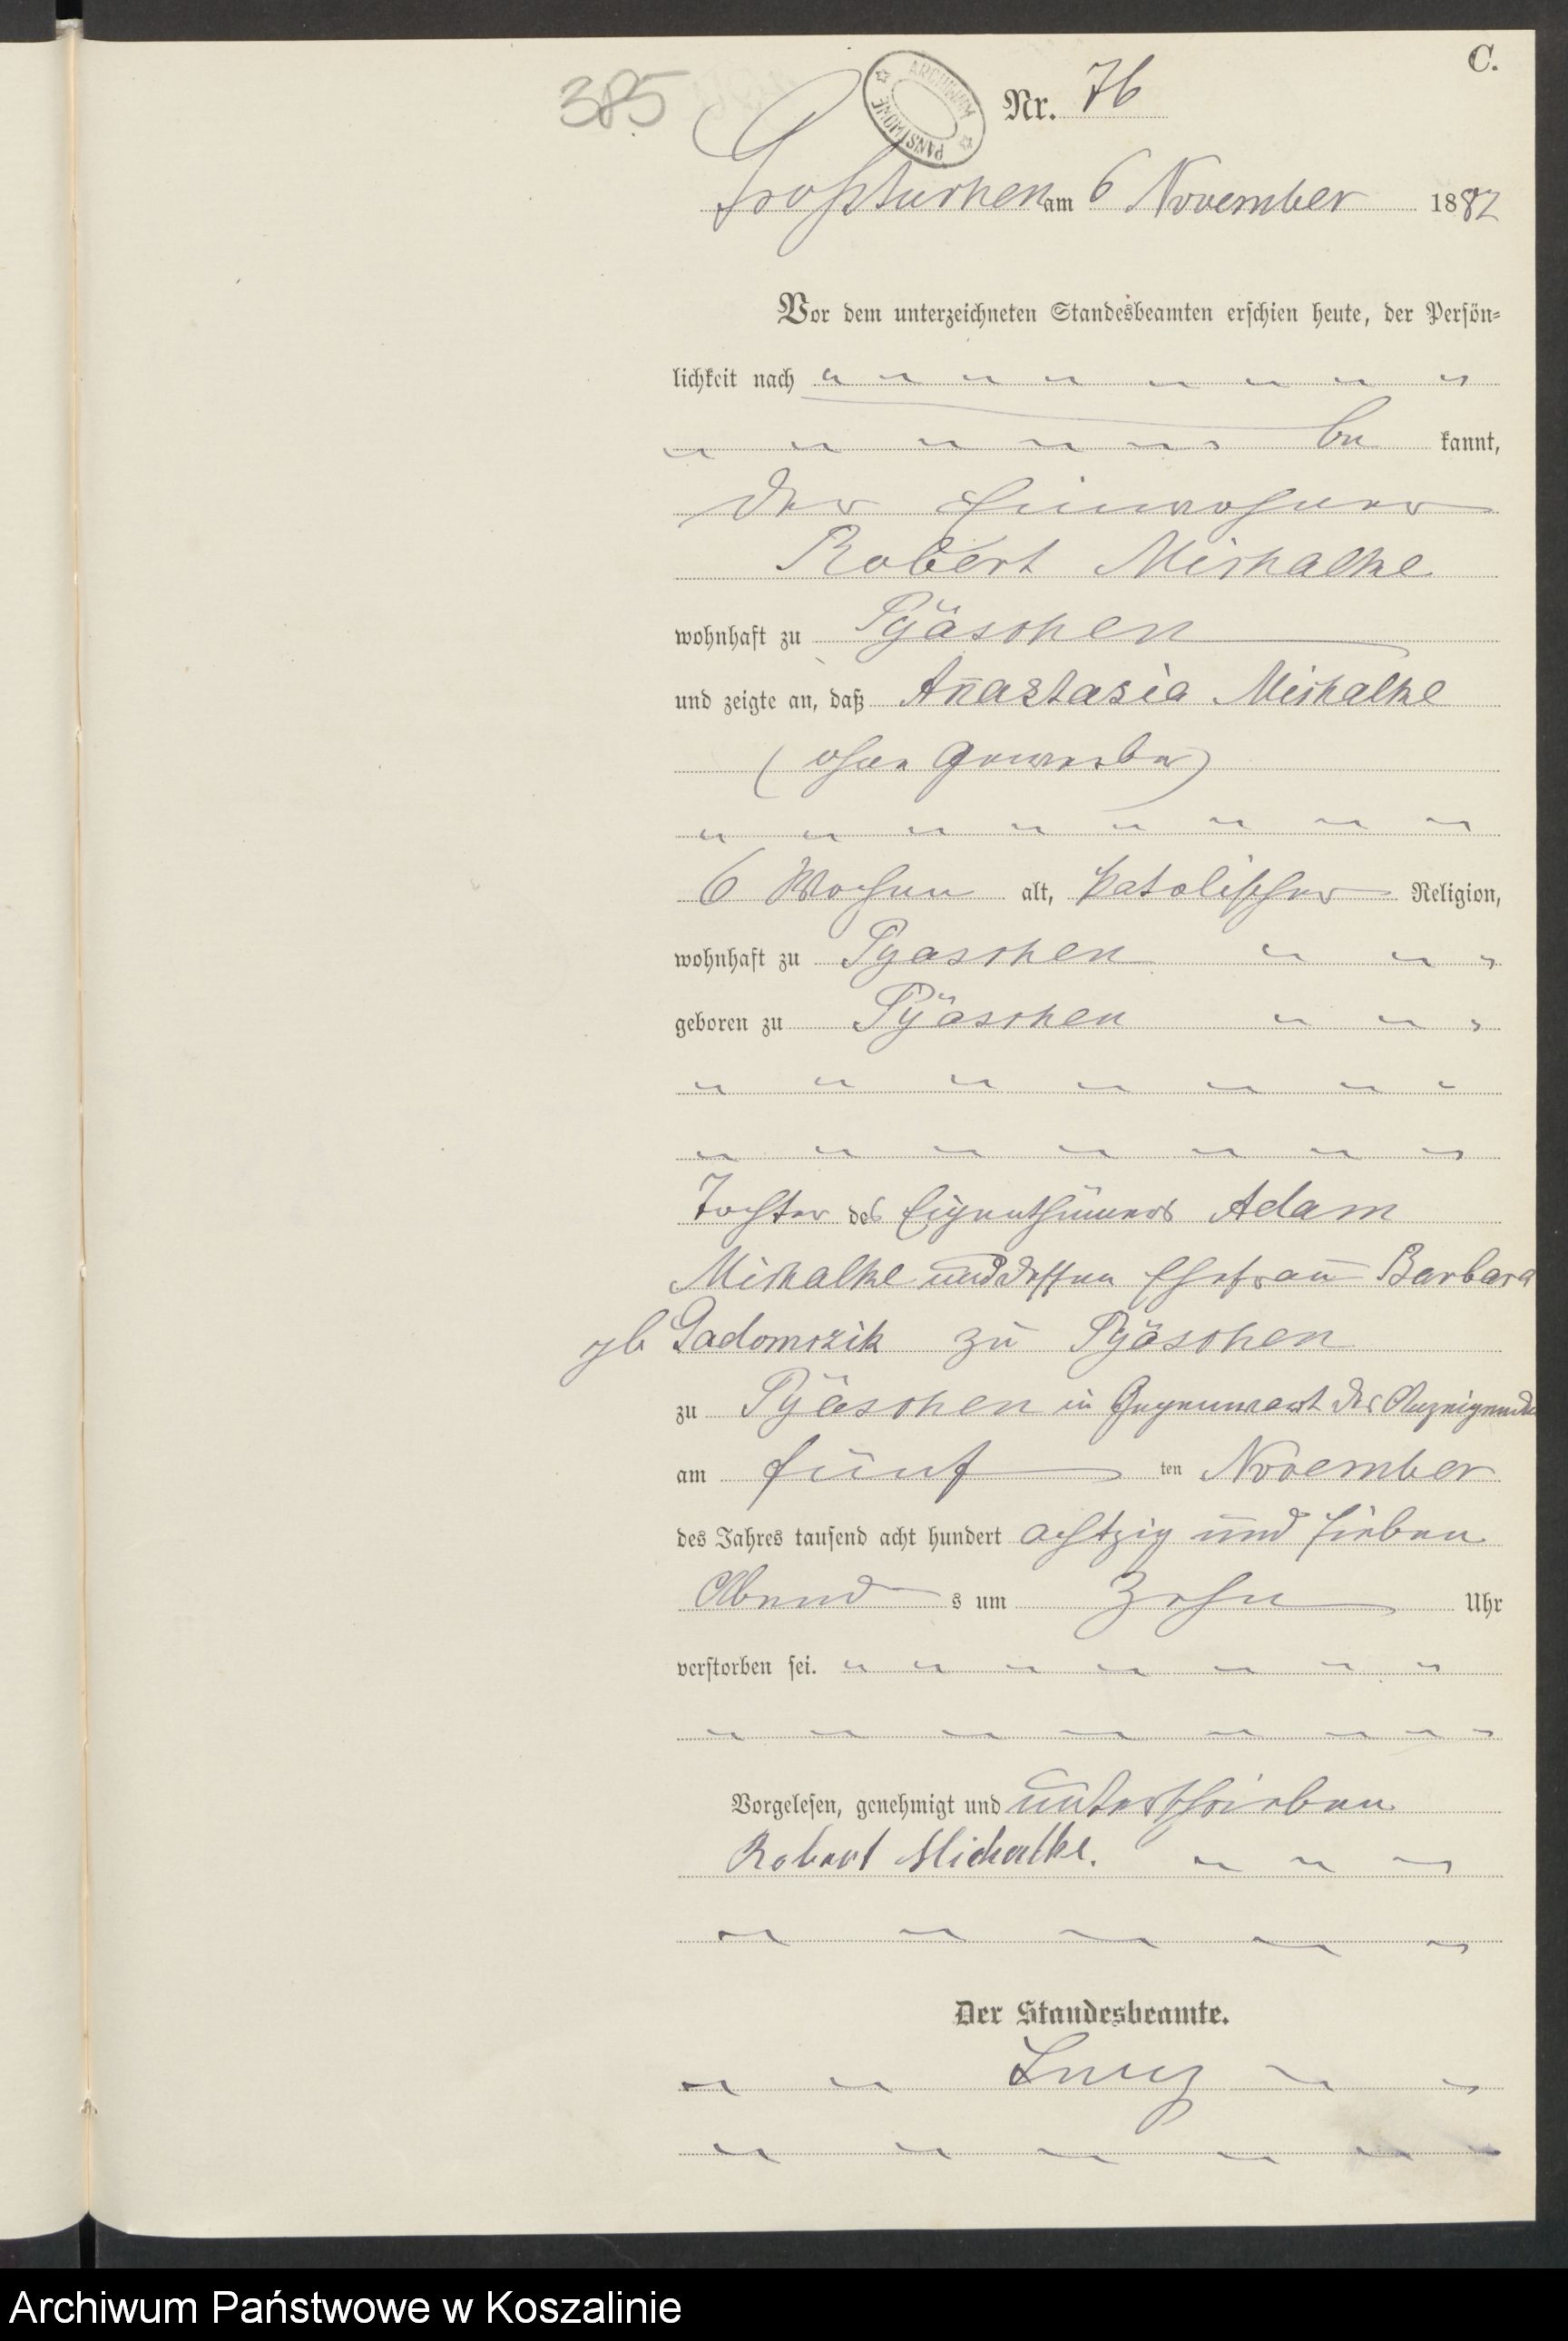 C.
385
ARCHIWUM PAŃSTWOWE
Nr. 76
Großturken am 6 November 1887
Vor dem unterzeichneten Standesbeamten erschien heute, der Persön-
lichkeit nach
be kannt,
der Einwohner
Robert Mischalke
wohnhaft zu Pyäschen
und zeigte an, daß Anastasia Mischalke
(ohne Gewerbe)
6 Wochen alt, katolischer Religion,
wohnhaft zu Pyaschen
geboren zu Pyäschen
Tochter des Eigenthümers Adam
Mischalke und dessen Ehefrau Barbara
gb Gadomszik zu Pyäschen
zu Pyäschen in Gegenwart des Anzeigenden
am fünf ten November
des Jahres tausend acht hundert achtzig und sieben
Abend s um Zehn Uhr
verstorben sei.
Vorgelesen, genehmigt und unterschrieben
Robert Michalke.
Der Standesbeamte.
Archiwum Państwowe w Koszalinie